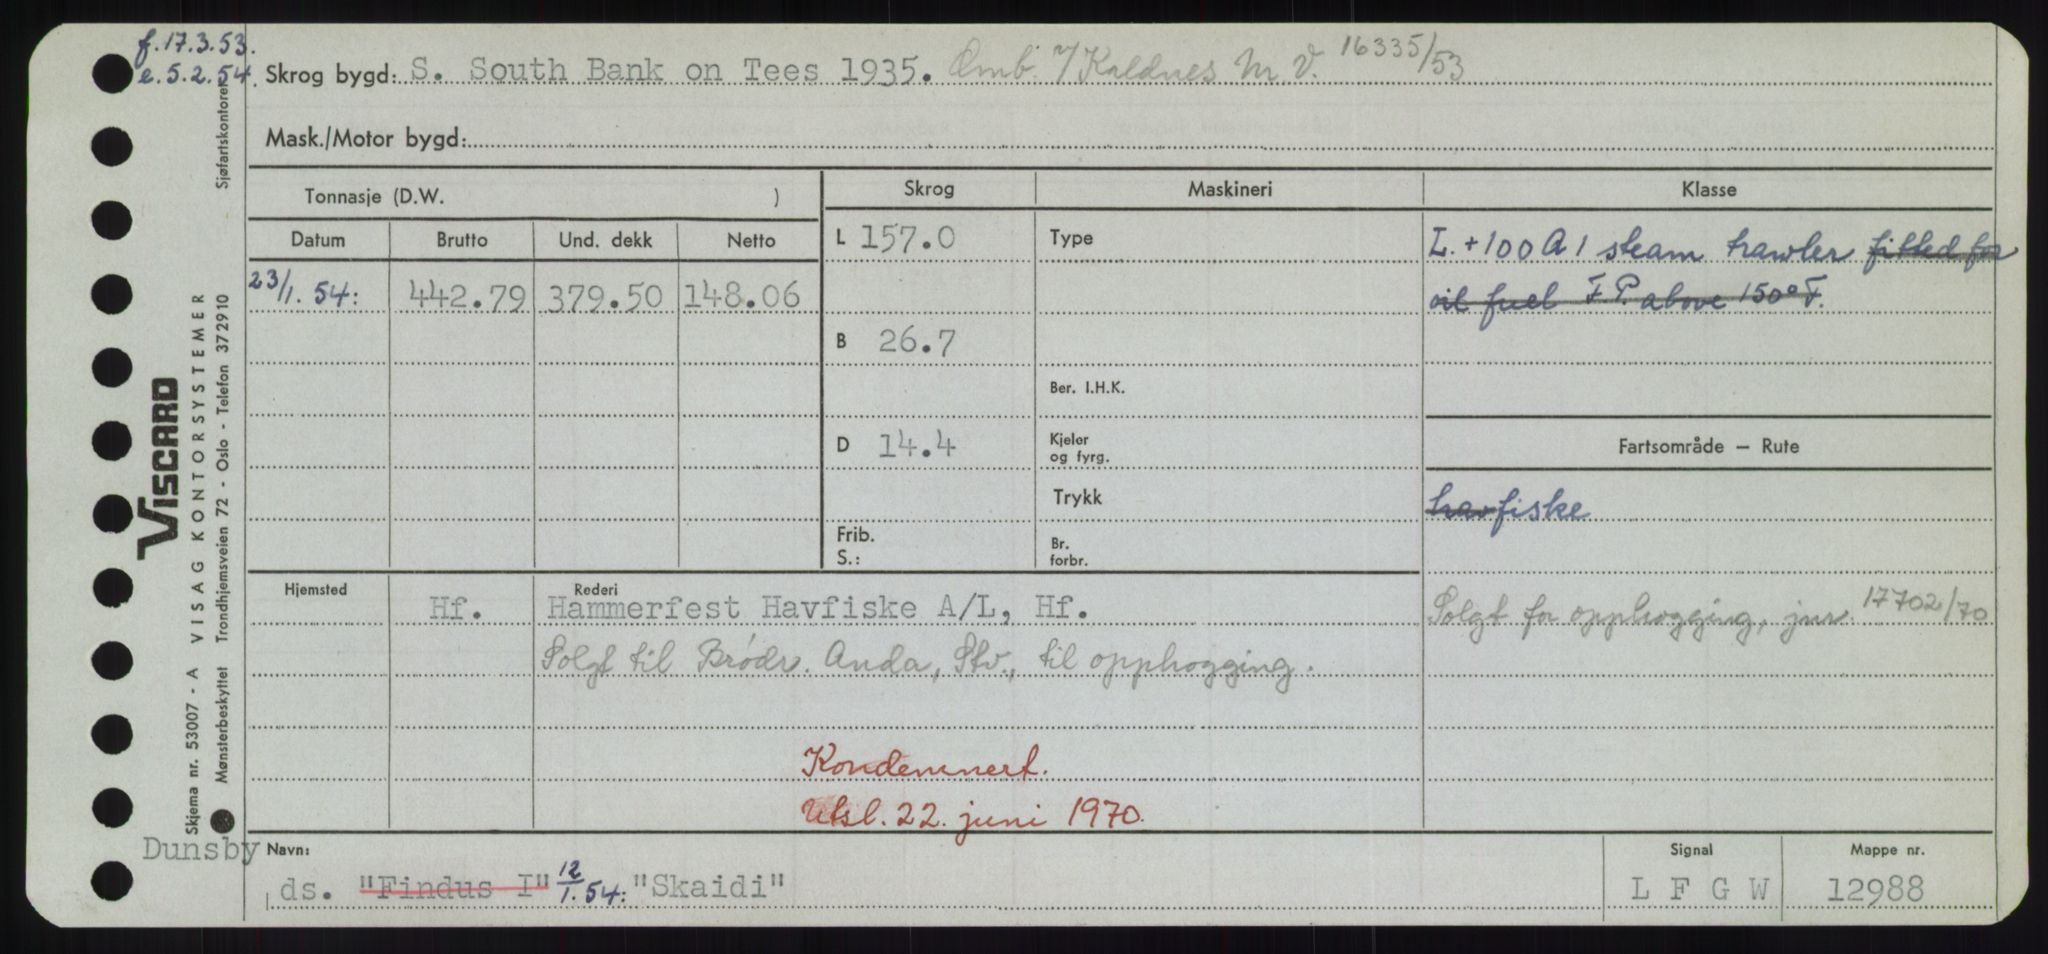 f. 17.3.53.
e. 5.2.54.
Skrog bygd: S. South Bank on Tees 1935. Omb. v/ Kaldnes M.V. 16335/53
Mask./Motor bygd:
Tonnasje (D.W. )
Skrog
Maskineri
Klasse
Datum
Brutto
Und. dekk
Netto
L 157.0
Type
L. +100 A 1 steam trawler fitted for
23/1. 54:
442.79
379.50
148.06
oil fuel F.P. above 150° F.
B 26.7
Ber. I.H.K.
D 14.4
Kjeler
og fyrg.
Fartsområde — Rute
Trykk
havfiske
Frib.
S.:
Br.
forbr.
Hjemsted
Hf.
Rederi
Hammerfest Havfiske A/L, Hf.
Solgt for opphogging, jnr. 17702/70
Solgt til Brødr. Anda, Stv., til opphogging.
Kondemnert.
Utsl. 22. juni 1970.
Dunsby
Navn:
ds. "Findus I" 12/1.54: "Skaidi"
Signal
L F G W
Mappe nr.
12988
Sjøfartskontoret
VISCARD
VISAG KONTORSYSTEMER
Trondhjemsveien 72 - Oslo - Telefon 372910
Skjema nr. 53007 - A
Mønsterbeskyttet